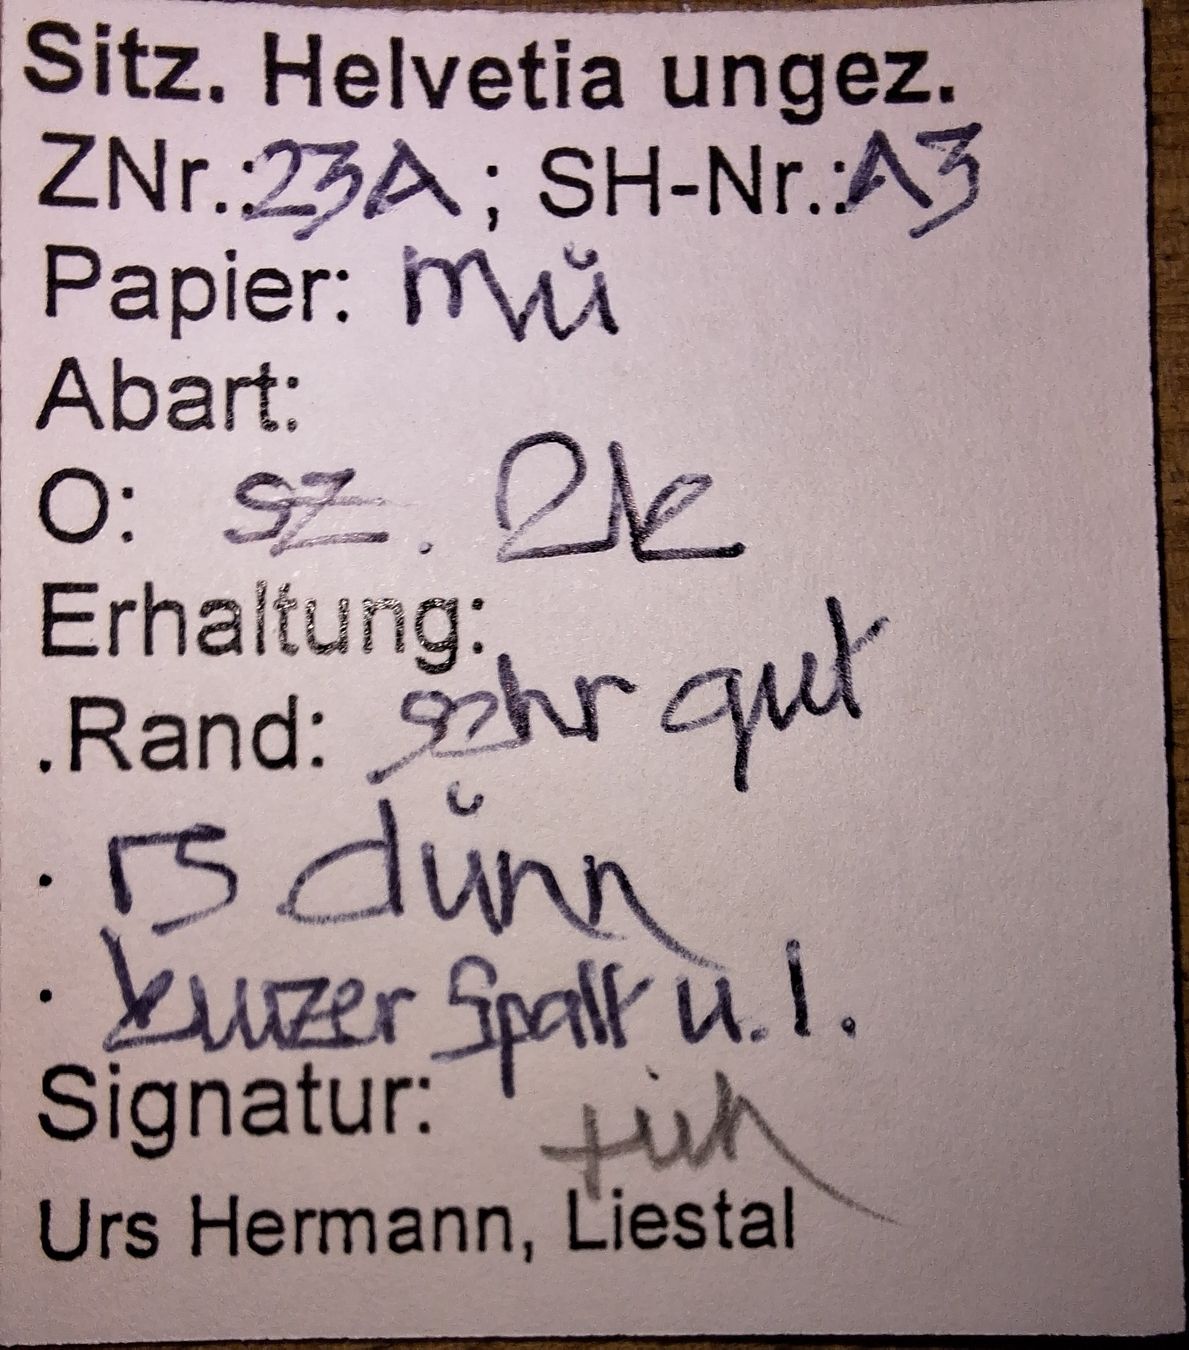 Sitz. Helvetia ungez.
ZNr.: 23A ; SH-Nr.: A3
Papier: mü
Abart:
O: sz. 2k
Erhaltung:
.Rand: sehr gut
. rs dünn
. kurzer Spalt u. l.
Signatur:
Urs Hermann, Liestal